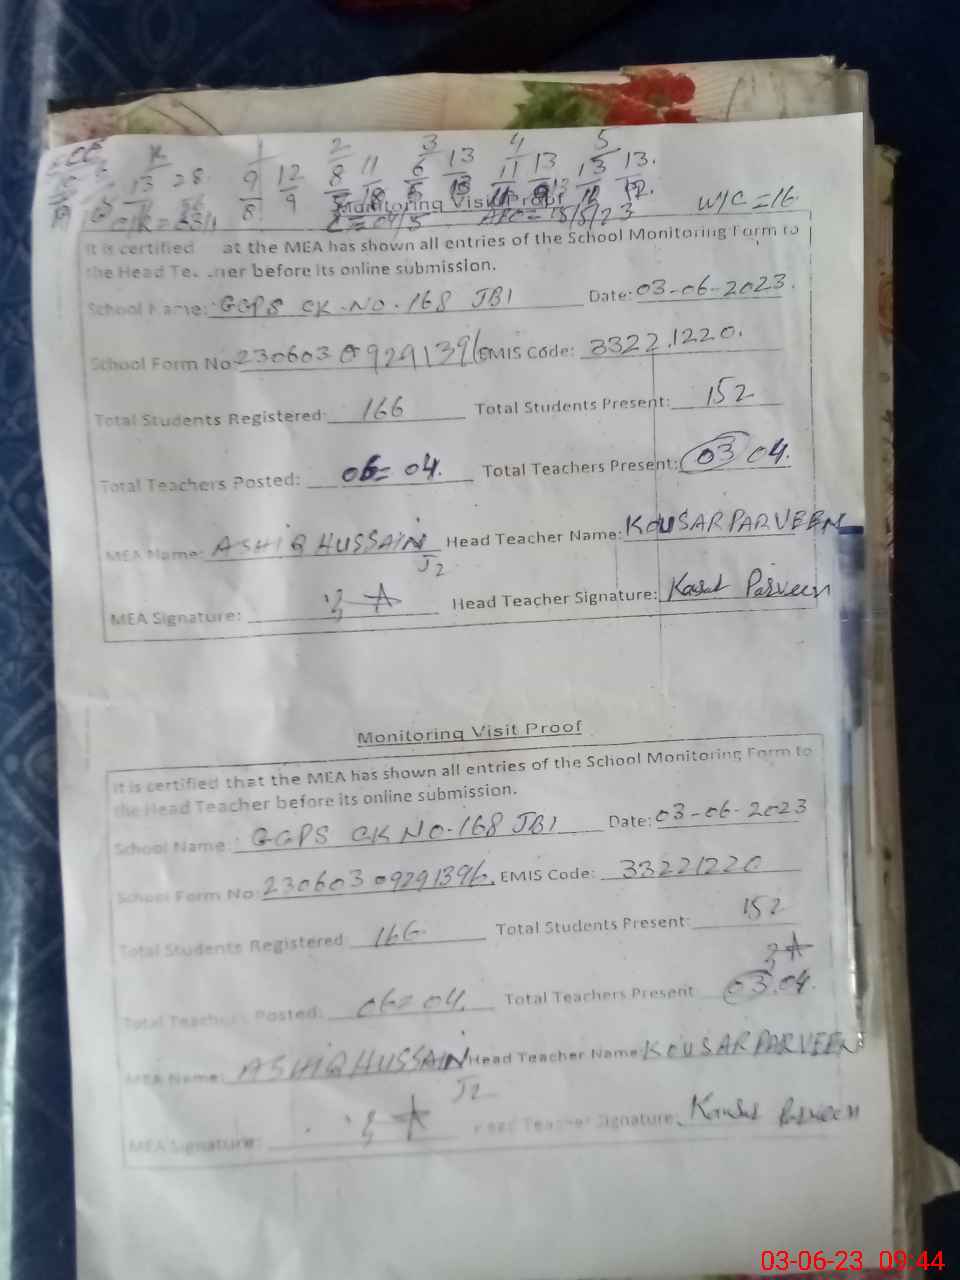 ECE K 1 2 3 4 5
13 28 9 12 8 11 6 13 11 13 13 13.
8 9
Monitoring Visit Proof W/C = 16
It is certified at the MEA has shown all entries of the School Monitoring Form to
the Head Te. .ner before its online submission.
School Name: GGPS CK.NO.168 JB1 Date: 03-06-2023.
School Form No: 230603 09291396 EMIS Code: 33221220.
Total Students Registered: 166 Total Students Present: 152
Total Teachers Posted: 06= 04. Total Teachers Present: 03 04.
MEA Name: ASHIQ HUSSAIN Head Teacher Name: KOUSAR PARVEEN
J2
MEA Signature: Head Teacher Signature: Kausar Parveen
Monitoring Visit Proof
It is certified that the MEA has shown all entries of the School Monitoring Form to
the Head Teacher before its online submission.
School Name: GGPS CK NO.168 JB1 Date: 03-06-2023
School Form No: 230603 09291396. EMIS Code: 33221220
Total Students Registered 166 Total Students Present: 152
Total Teachers Posted: 06= 04. Total Teachers Present 03.04.
MEA Name: ASHIQ HUSSAIN Head Teacher Name KOUSAR PARVEEN
J2
MEA Signature: Head Teacher Signature: Kausar Parveen
03-06-23 09:44